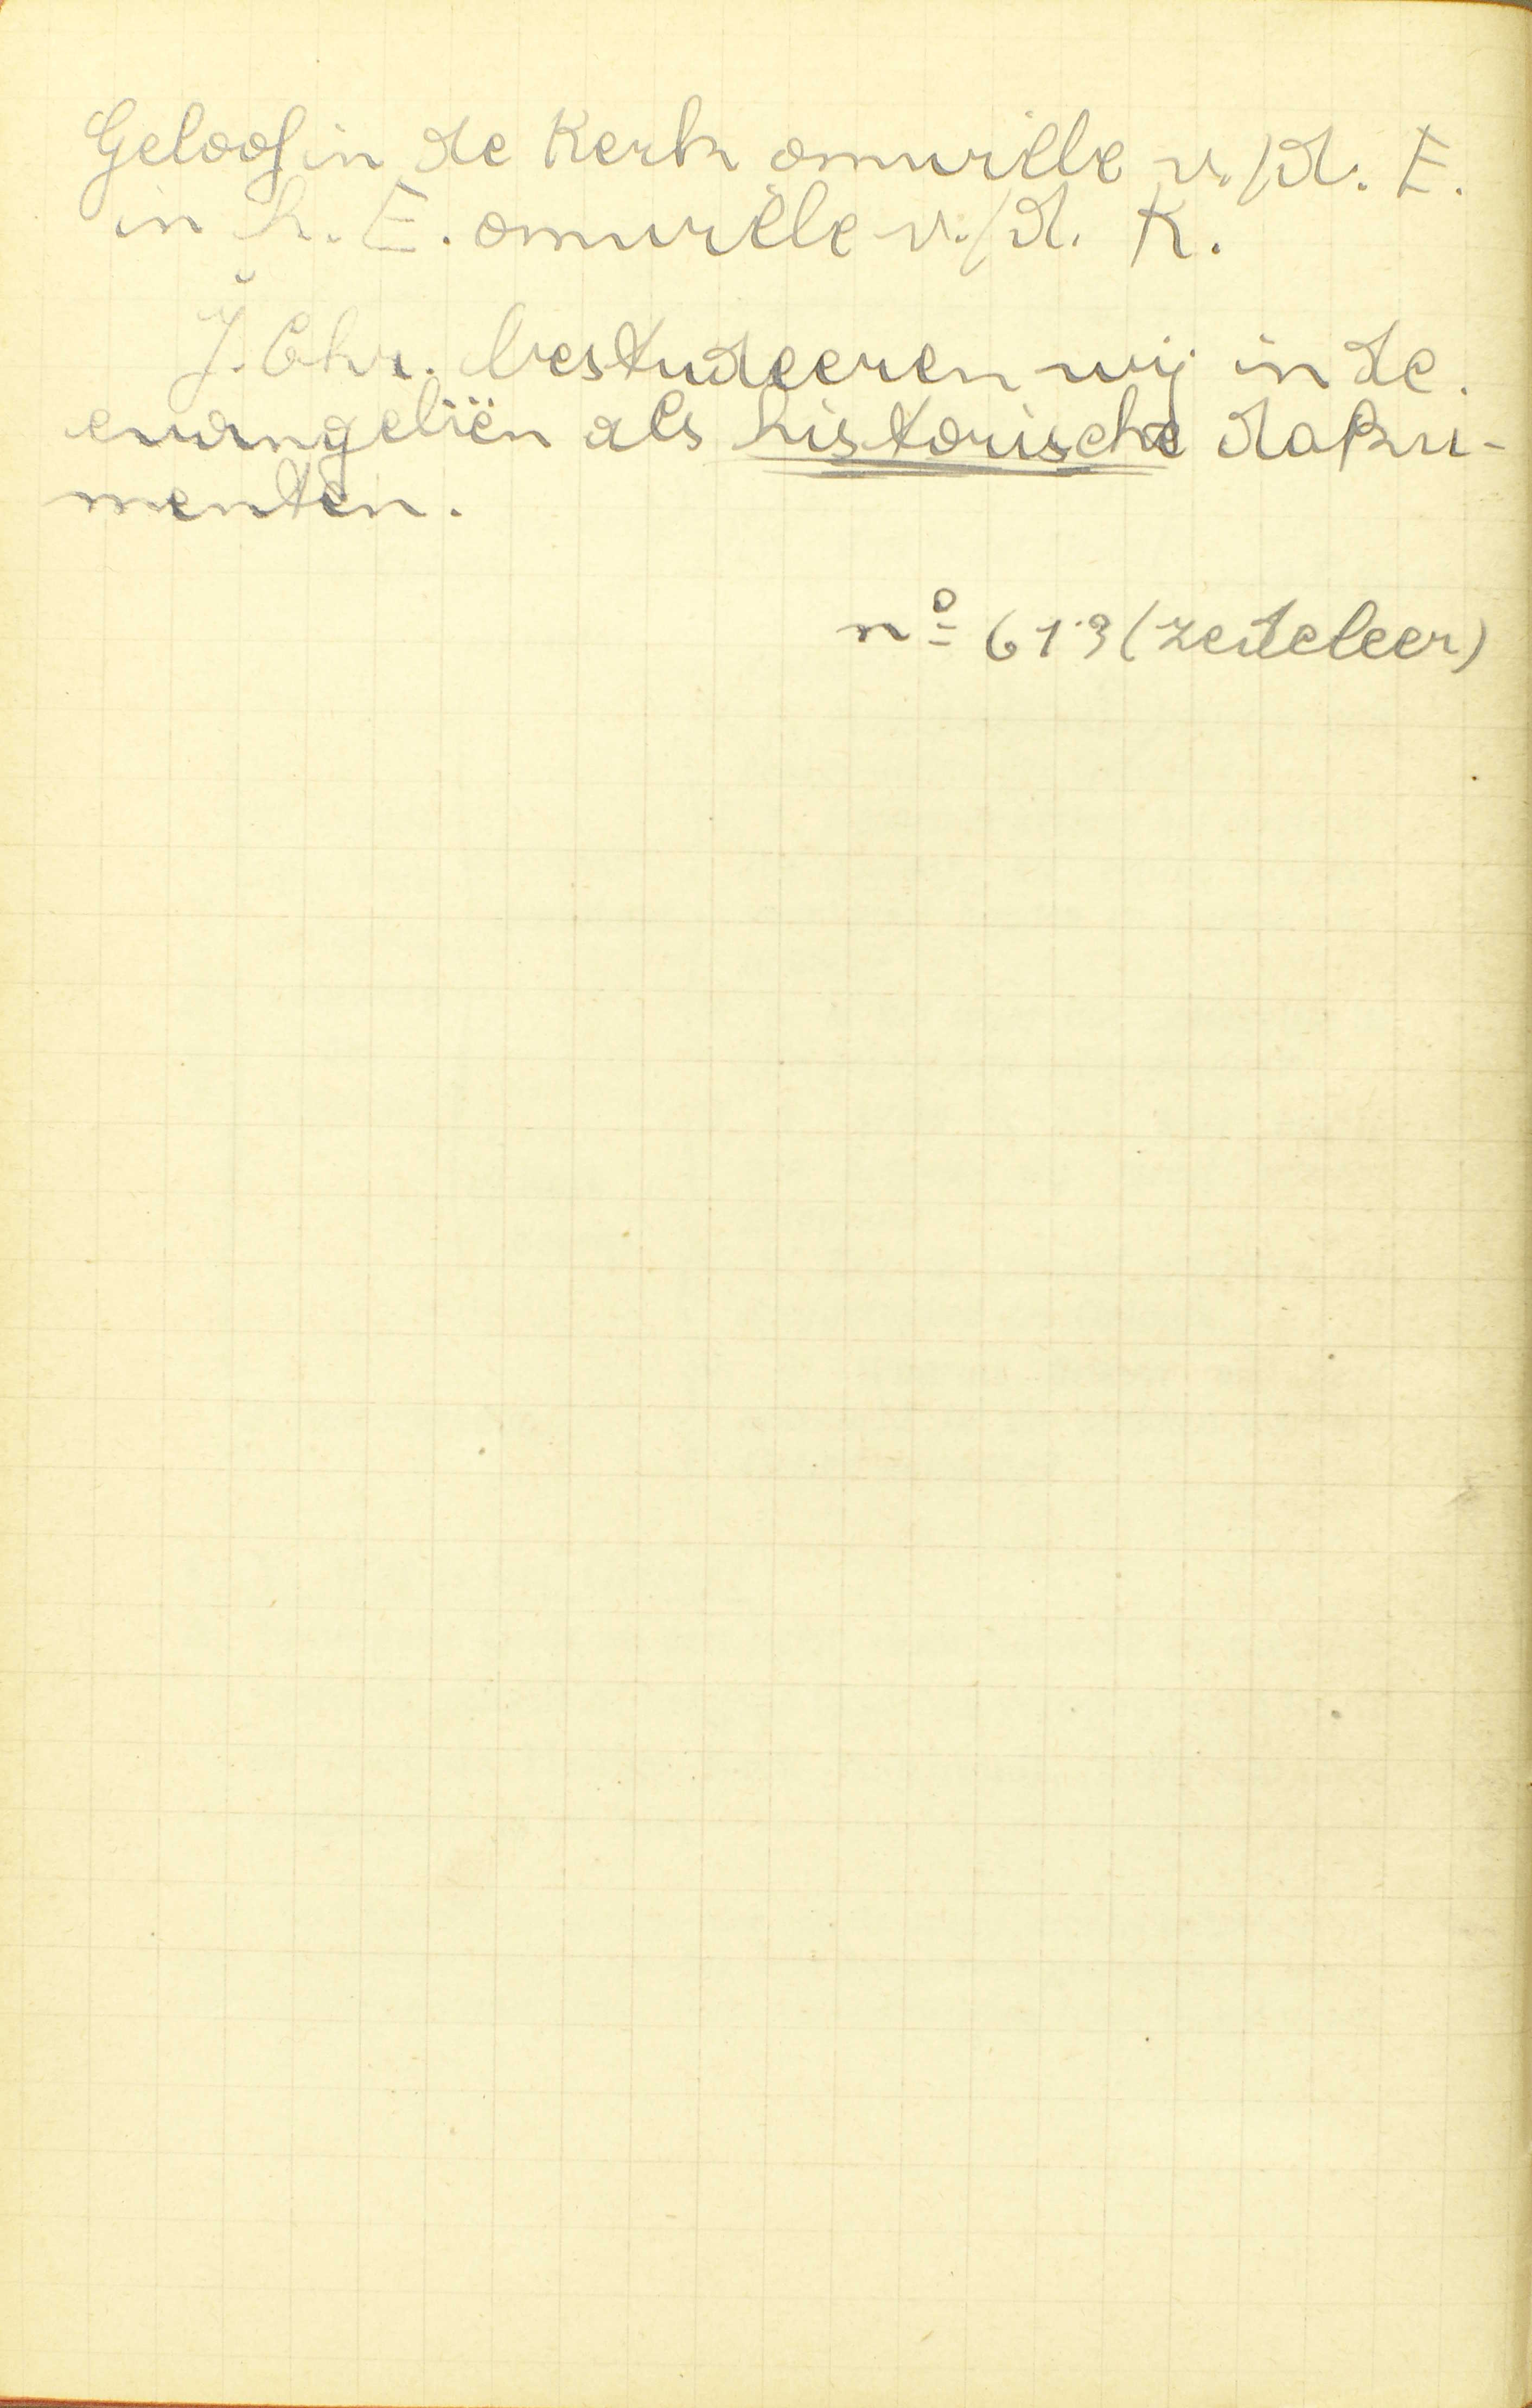 Geloof in de Kerk omwille v./d. E.
in h. E. omwille v./d. K.
J. Chr. bestudeeren wij in de
evangeliën als historische doku-
menten.
nº 613 (zedeleer)